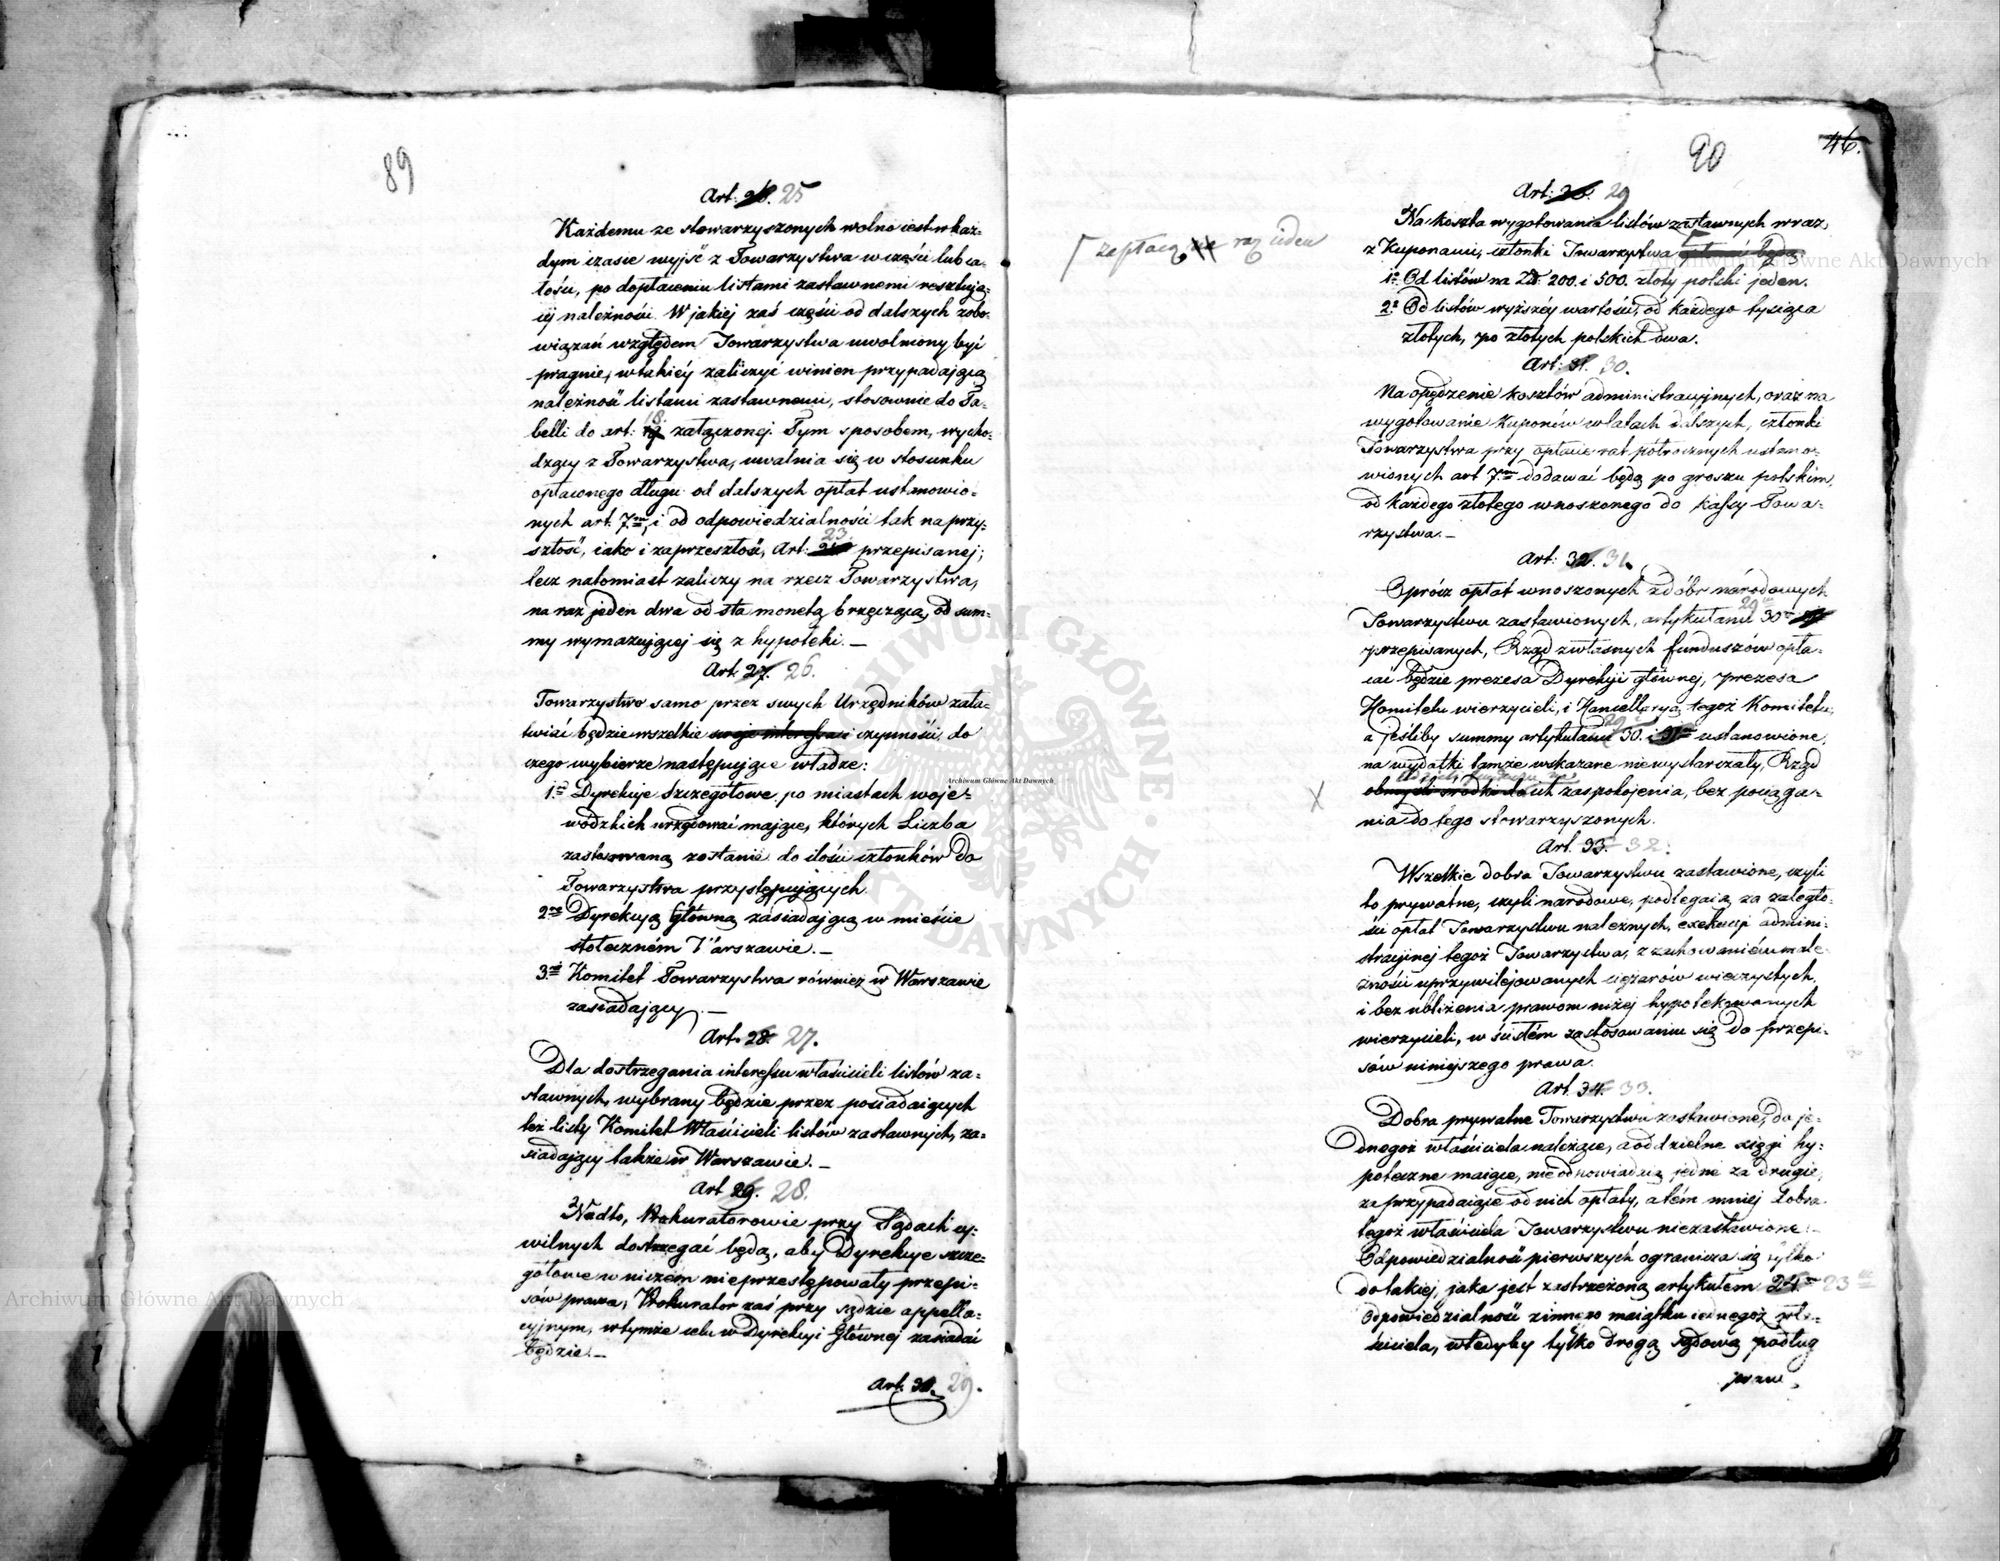 89
Art: 26. 25
Każdemu ze stowarzyszonych wolno iest w każ=
dym czasie wyjść z Towarzystwa w części lub ca=
łości, po dopłaceniu listami zastawnemi resztują=
cej należności. W jakiej zaś części od dalszych zobo=
wiązań względem Towarzystwa uwolniony być
pragnie, w takiéy zaliczyć winien przypadającą
należność listami zastawnemi, stosownie do Ta=
belli do art: 18. załączonej. Tym sposobem, wycho=
dzący z Towarzystwa, uwalnia się w stosunku
opłaconego długu od dalszych opłat ustanowio=
nych art. 7ym, i od odpowiedzialności tak na przy=
szłość, iako i zaprzeszłość, Art: 23 przepisanej;
lecz natomiast zaliczy na rzecz Towarzystwa,
na raz jeden dwa od sta monetą brzęczącą, od sum=
my wymazującej się z hypoteki. —
Art. 27. 26.
Towarzystwo samo przez swych Urzędników zała=
twiać będzie wszelkie swoje interessa i czynności, do
czego wybierze następujące władze:
1sze Dyrekcje szczegółowe, po miastach woje=
wódzkich urzędować mające, których Liczba
zastosowaną zostanie do ilości członków do
Towarzystwa przystępujących.
2re Dyrekcyą Główną zasiadającą w mieście
stołeczném Warszawie. —
3cie Komitet Towarzystwa również w Warszawie
zasiadający. —
Art. 28. 27.
Dla dostrzegania interessu właścicieli listów za=
stawnych, wybrany będzie przez posiadaiących
też listy Komitet Właścicieli listów zastawnych, za=
siadający także w Warszawie. —
Art 29. 28.
Nadto, Prokuratorowie przy Sądach cy=
wilnych dostrzegać będą, aby Dyrekcje szcze=
gółowe w niczem nieprzestępowały przepi=
sów prawa; Prokurator zaś przy sądzie appella=
cyjnym, w tymże celu w Dyrekcyi Głównej zasiadać
będzie. —
Art. 30. 29.
90
46.
Art: 29
Na koszta wygotowania listów zastawnych wraz
z Kuponami, członki Towarzystwa składać będą
zapłacą raz ieden
1e Od listów na Zł: 200. i 500. złoty polski jeden.
2e Od listów wyższéy wartości, od każdego tysiąca
złotych, po złotych polskich dwa.
Art: 31. 30.
Na opędzenie kosztów administracyjnych, oraz na
wygotowanie Kuponów w latach dalszych, członki
Towarzystwa przy opłacie rat półrocznych ustano=
wionych art 7ym dodawać będą po groszu polskim,
od każdego złotego wnoszonego do kassy Towa=
rzystwa. —
Art: 32. 31.
Oprócz opłat wnoszonych z dóbr narodowych
Towarzystwu zastawionych, artykułami 29 30
przepisanych, Rząd z własnych funduszów opła=
cać będzie prezesa Dyrekcyi głównej, prezesa
Komitetu wierzycieli, i Kancellaryą tegoż Komitetu,
a jeśliby summy artykułami 29 30. i 31 ustanowione,
na wydatki tamże wskazane niewystarczały, Rząd
X
obmyśli środki do ich zaspokojenia, bez pociąga=
nia do tego stowarzyszonych.
Art. 33. 32.
Wszelkie dobra Towarzystwu zastawione, czyli
to prywatne, czyli narodowe, podlegaią za zaległo=
ści opłat Towarzystwu należnych, exekucji admini=
stracyjnej tegoż Towarzystwa, z zachowaniem nale=
żności uprzywilejowanych ciężarów wieczystych,
i bez ubliżenia prawom niżej hypotekowanych
wierzycieli, w ścisłém zastosowaniu się do przepi=
sów niniejszego prawa.
Art. 34. 33.
Dobra prywatne Towarzystwu zastawione, do je=
dnegoż właściciela należące, a oddzielne xięgi hy=
poteczne maiące, nie odpowiadaią jedne za drugie,
za przypadaiące od nich opłaty, a tém mniéj dobra
tegoż właściciela Towarzystwu niezastawione. —
Odpowiedzialność pierwszych ogranicza się tylko
do takiéj, jaka jest zastrzeżoną artykułem 24m 23m
odpowiedzialność z innego maiątku iednegoż wła=
ściciela, wtedyby tylko drogą sądową podług
praw